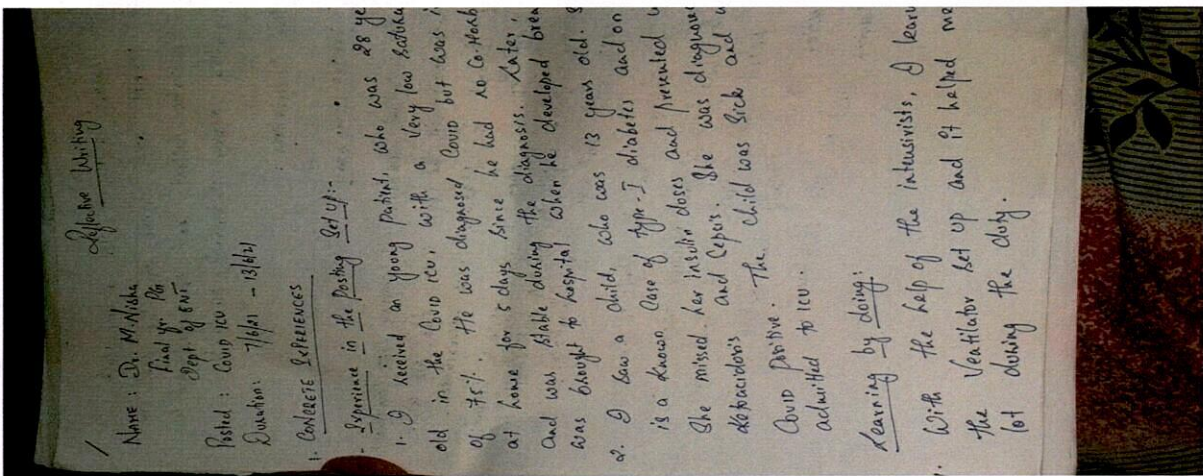 Reflective Writing
NAME : Dr. M. Nisha
Final yr. PG
Dept of ENT
Posted : Covid ICU
Duration: 7/6/21 - 13/6/21
1. CONCRETE EXPERIENCES
Experience in the Posting Set up:-
1. I received an young patient, who was 28 ye
old in the Covid ICU, with a very low satura
of 75%. He was diagnosed COVID but was i
at home for 5 days since he had no Co.Morb
and was stable during the diagnosis. Later,
was brought to hospital when he developed brea
2. I saw a child, who was 13 years old. S
is a known case of type-I diabetes and on
She missed her insulin doses and presented w
Ketoacidosis and Cepsis. She was diagnose
COVID positive. The child was sick and w
admitted to ICU.
Learning by doing:
With the help of the intensivists, I lear
the Ventilator set up and it helped me
lot during the duty.